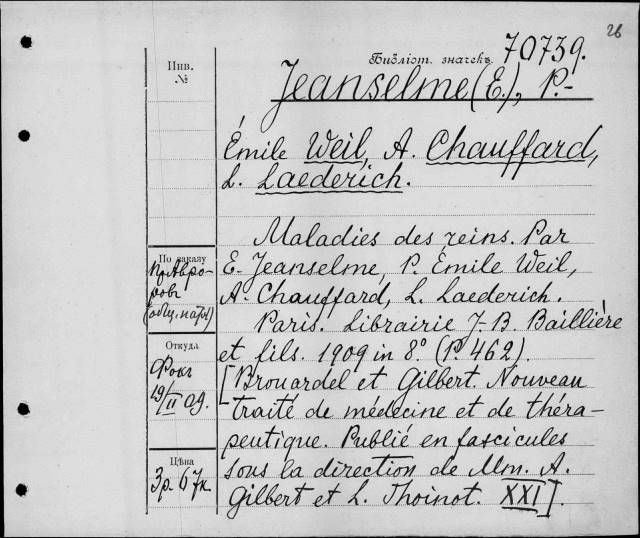 26
Библіот. значекъ 70739.
Инв.
№
Jeanselme (E.), P.-
Émile Weil, A. Chauffard,
L. Laederich.
Maladies des reins. Par
E. Jeanselme, P. Emile Weil,
A. Chauffard, L. Laederich.
Paris. Librairie J-B. Baillière
et fils. 1909 in 8° (P. 462).
[Brouardel et Gilbert. Nouveau
traité de médecine et de théra-
peutique. Publié en fascicules
sous la direction de Mm. A.
Gilbert et L. Thoinot. XXI].
По заказу
пр. Авро-
рова
Откуда
Фокъ
19/II 09.
Цѣна
3р. 67к.